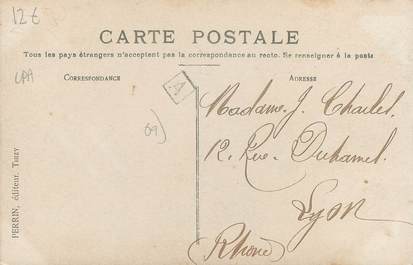 12€
CARTE POSTALE
Tous les pays étrangers n'acceptent pas la correspondance au recto. Se renseigner à la poste
CPA
CORRESPONDANCE
ADRESSE
A
69)
Madame J. Charlet.
12. Rue Duhamel.
Lyon
Rhône
PERRIN, éditeur, THIZY